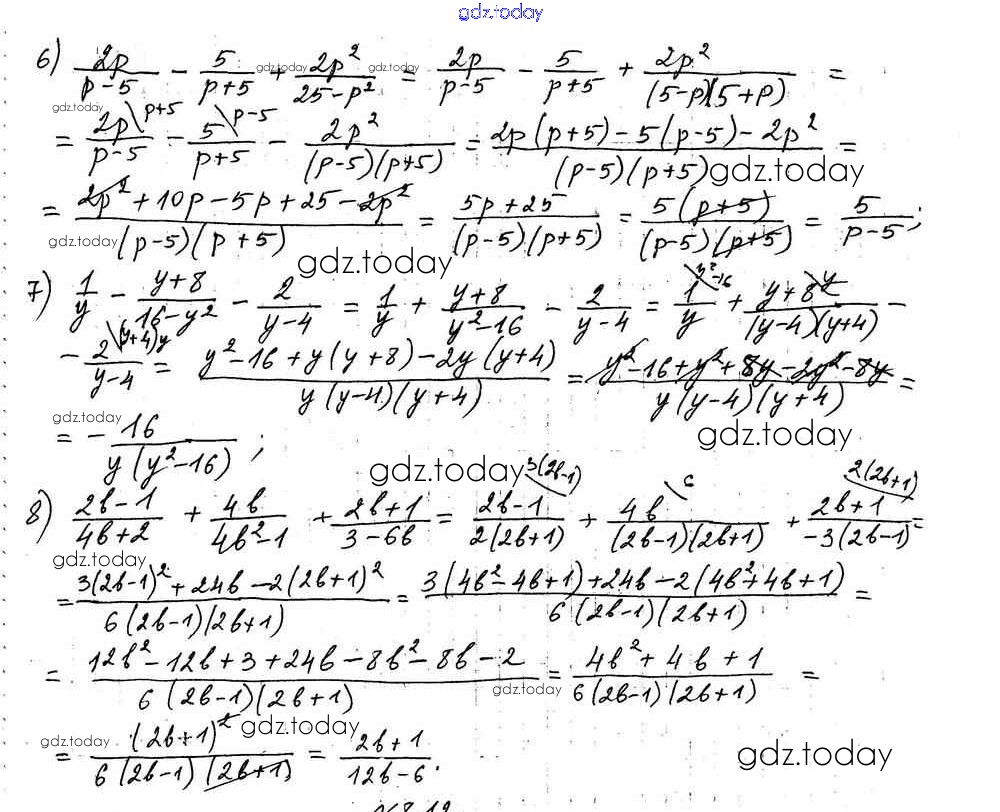 gdz.today
6) 2p/(p-5) - 5/(p+5) + 2p²/(25-p²) = 2p/(p-5) - 5/(p+5) + 2p²/((5-p)(5+p)) =
gdz.today gdz.today gdz.today
= 2p\p+5/(p-5) - 5\p-5/(p+5) - 2p²/((p-5)(p+5)) = (2p(p+5)-5(p-5)-2p²)/((p-5)(p+5)) =
gdz.today
= (2p²+10p-5p+25-2p²)/((p-5)(p+5)) = (5p+25)/((p-5)(p+5)) = 5(p+5)/((p-5)(p+5)) = 5/(p-5);
gdz.today gdz.today
7) 1/y - (y+8)/(16-y²) - 2/(y-4) = 1/y + (y+8)/(y²-16) - 2/(y-4) = 1\y²-16/y + (y+8)\y/((y-4)(y+4)) -
- 2\(y+4)y/(y-4) = (y²-16+y(y+8)-2y(y+4))/(y(y-4)(y+4)) = (y²-16+y²+8y-2y²-8y)/(y(y-4)(y+4)) =
gdz.today gdz.today
= - 16/(y(y²-16));
gdz.today
8) (2b-1)/(4b+2) + 4b/(4b²-1) + (2b+1)/(3-6b) = (2b-1)\3(2b-1)/(2(2b+1)) + 4b\6/((2b-1)(2b+1)) + (2b+1)\2(2b+1)/(-3(2b-1)) =
gdz.today
= (3(2b-1)²+24b-2(2b+1)²)/(6(2b-1)(2b+1)) = (3(4b²-4b+1)+24b-2(4b²+4b+1))/(6(2b-1)(2b+1)) =
= (12b²-12b+3+24b-8b²-8b-2)/(6(2b-1)(2b+1)) = (4b²+4b+1)/(6(2b-1)(2b+1)) =
gdz.today
gdz.today gdz.today
= (2b+1)²/(6(2b-1)(2b+1)) = (2b+1)/(12b-6).
gdz.today